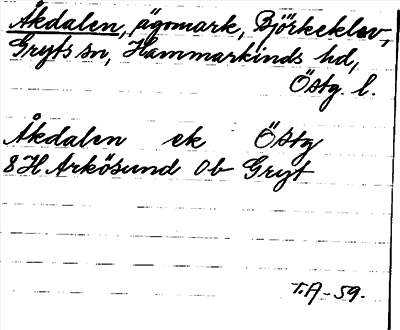 Åkdalen, ägomark, Björkeklev,
Gryts sn, Hammarkinds hd,
Östg. l.
Åkdalen ek Östg
8H Arkösund 0b Gryt
T.A-59.